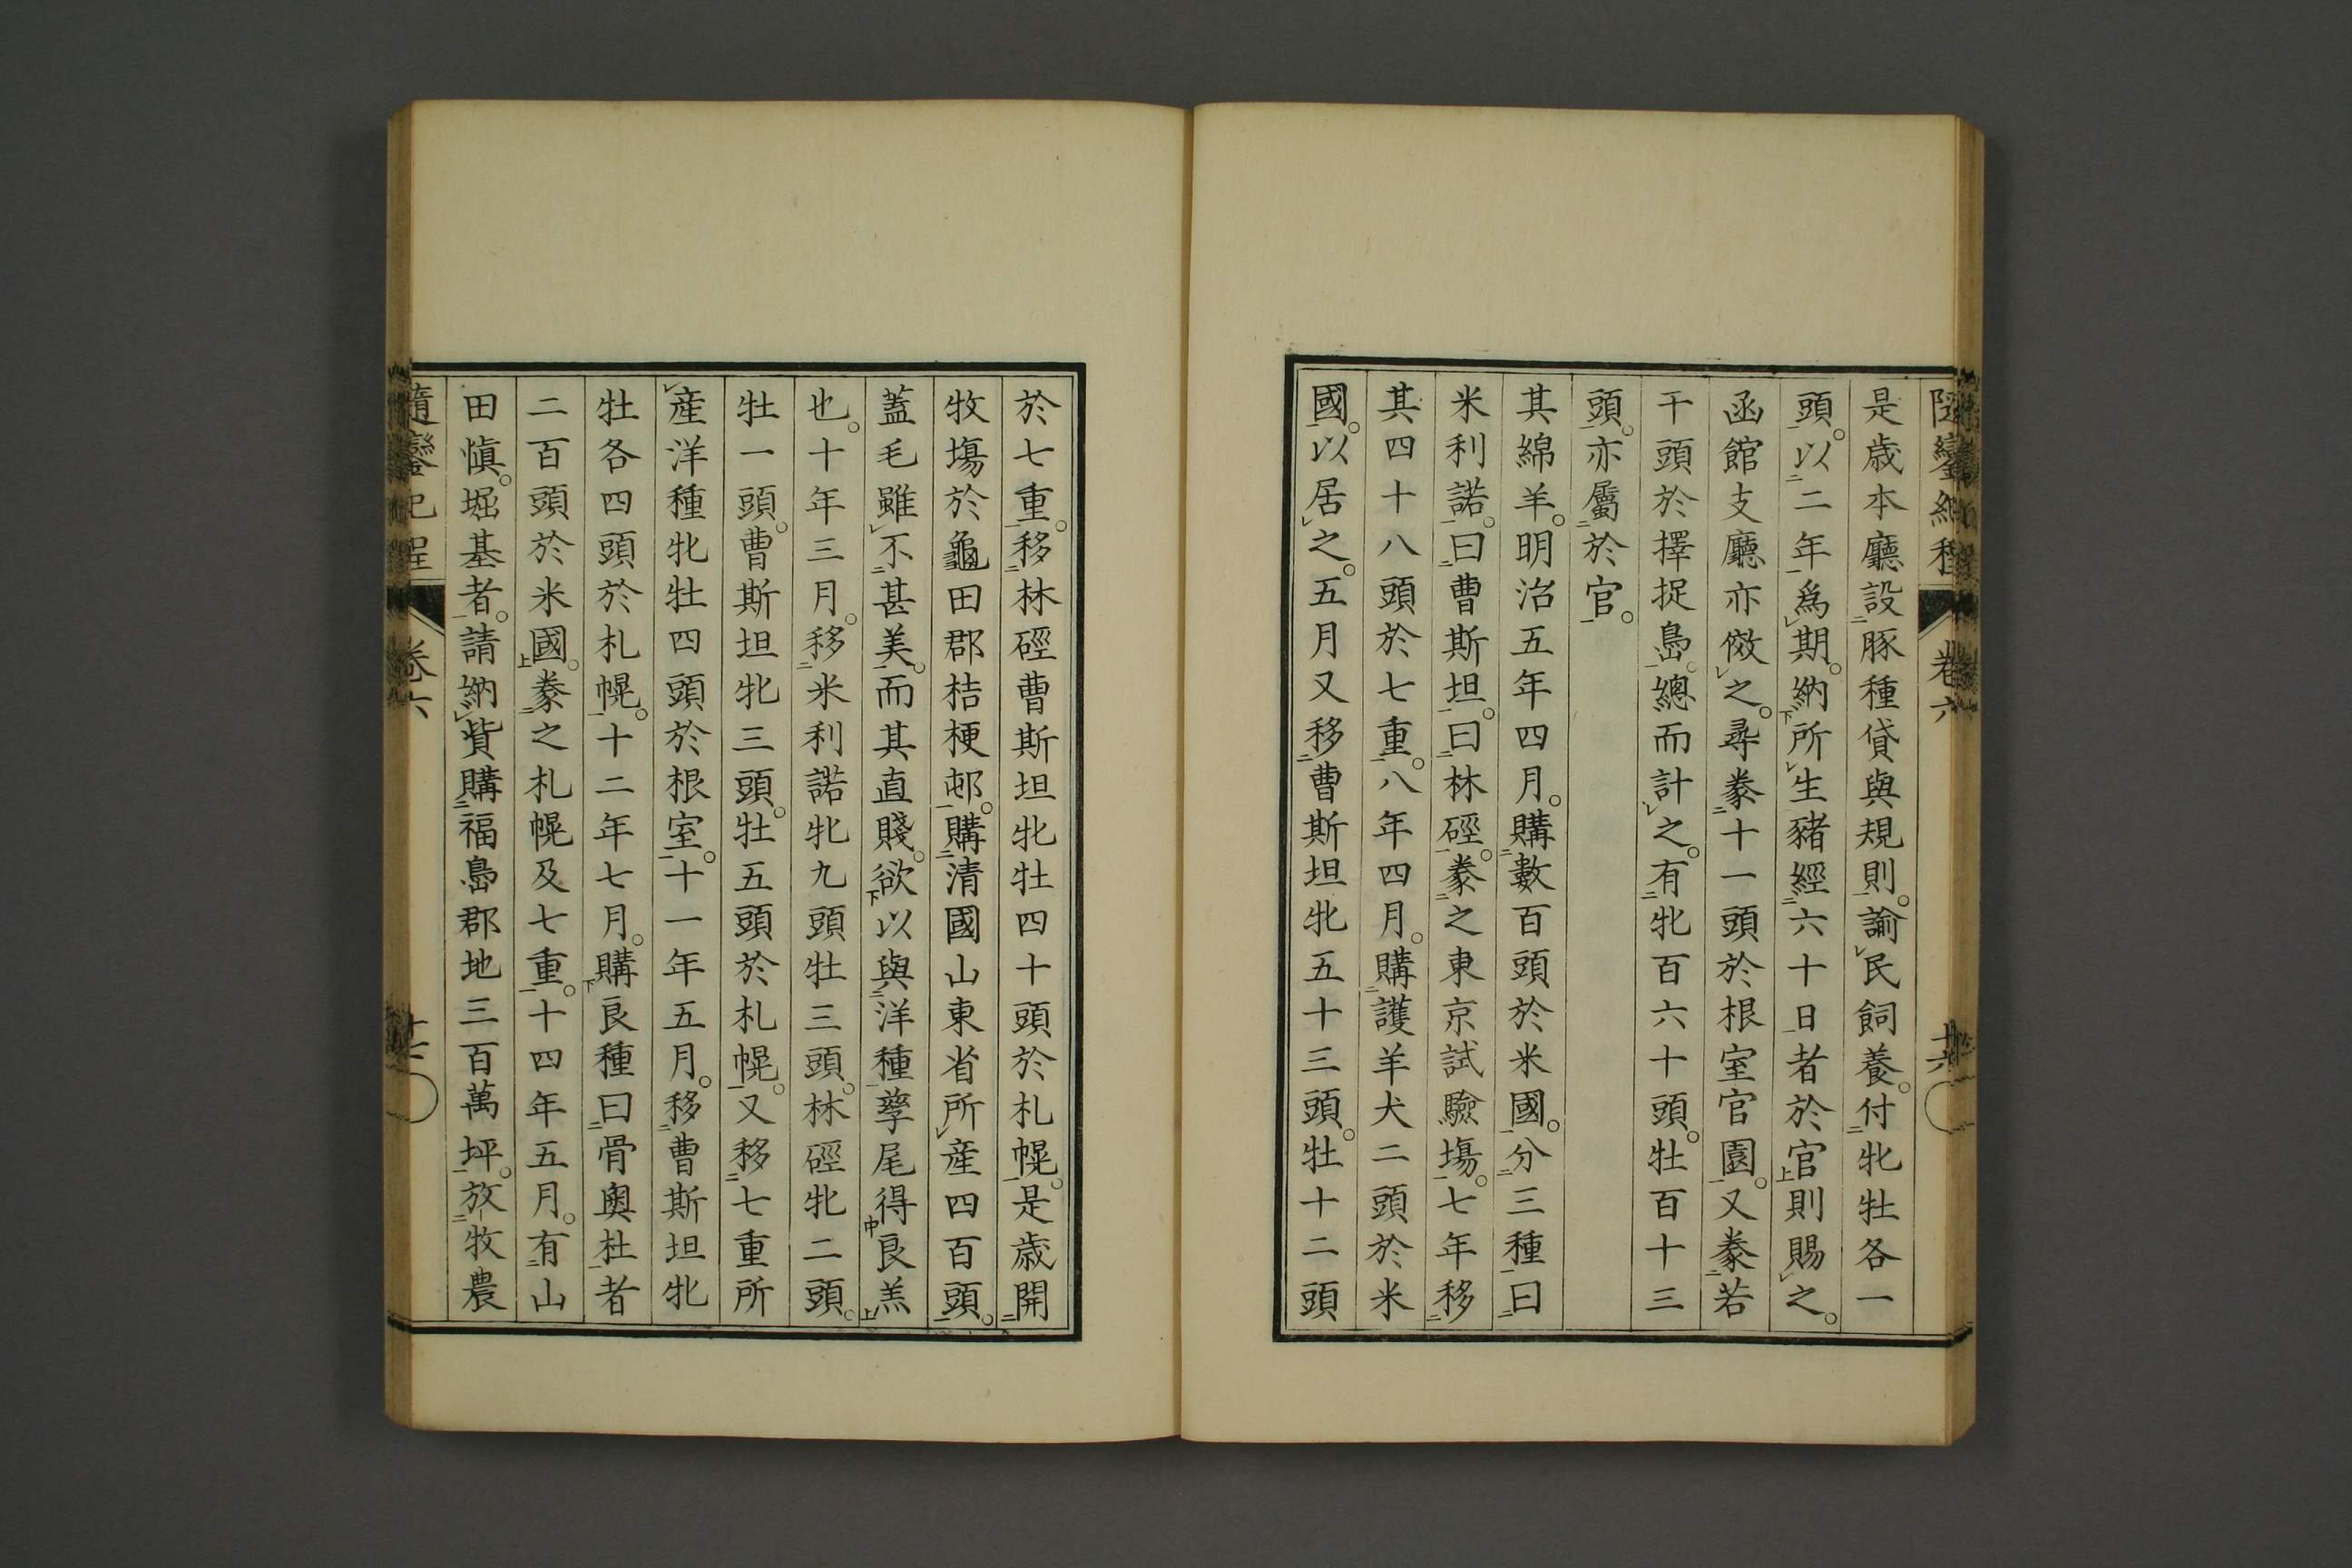 隨鑾紀程 卷六 十六
是歲本廳設豚種貸與規則。諭民飼養。付牝牡各一
頭。以二年爲期。納所生豬經六十日者於官則賜之。
函館支廳亦傚之。尋豢十一頭於根室官園。又豢若
干頭於擇捉島。總而計之。有牝百六十頭。牡百十三
頭。亦屬於官。
其綿羊。明治五年四月。購數百頭於米國。分三種曰
米利諾。曰曹斯坦。曰林硜。豢之東京試驗場。七年移
其四十八頭於七重。八年四月。購護羊犬二頭於米
國。以居之。五月又移曹斯坦牝五十三頭。牡十二頭
於七重。移林硜曹斯坦牝牡四十頭於札幌。是歲開
牧場於龜田郡桔梗邨。購清國山東省所產四百頭。
蓋毛雖不甚美。而其直賤。欲以與洋種孳尾得良羔
也。十年三月。移米利諾牝九頭牡三頭。林硜牝二頭。
牡一頭。曹斯坦牝三頭。牡五頭於札幌。又移七重所
產洋種牝牡四頭於根室。十一年五月。移曹斯坦牝
牡各四頭於札幌。十二年七月。購良種曰骨奧杜者
二百頭於米國。豢之札幌及七重。十四年五月。有山
田愼。堀基者。請納貲購福島郡地三百萬坪。放牧農
隨鑾紀程 卷六 十七